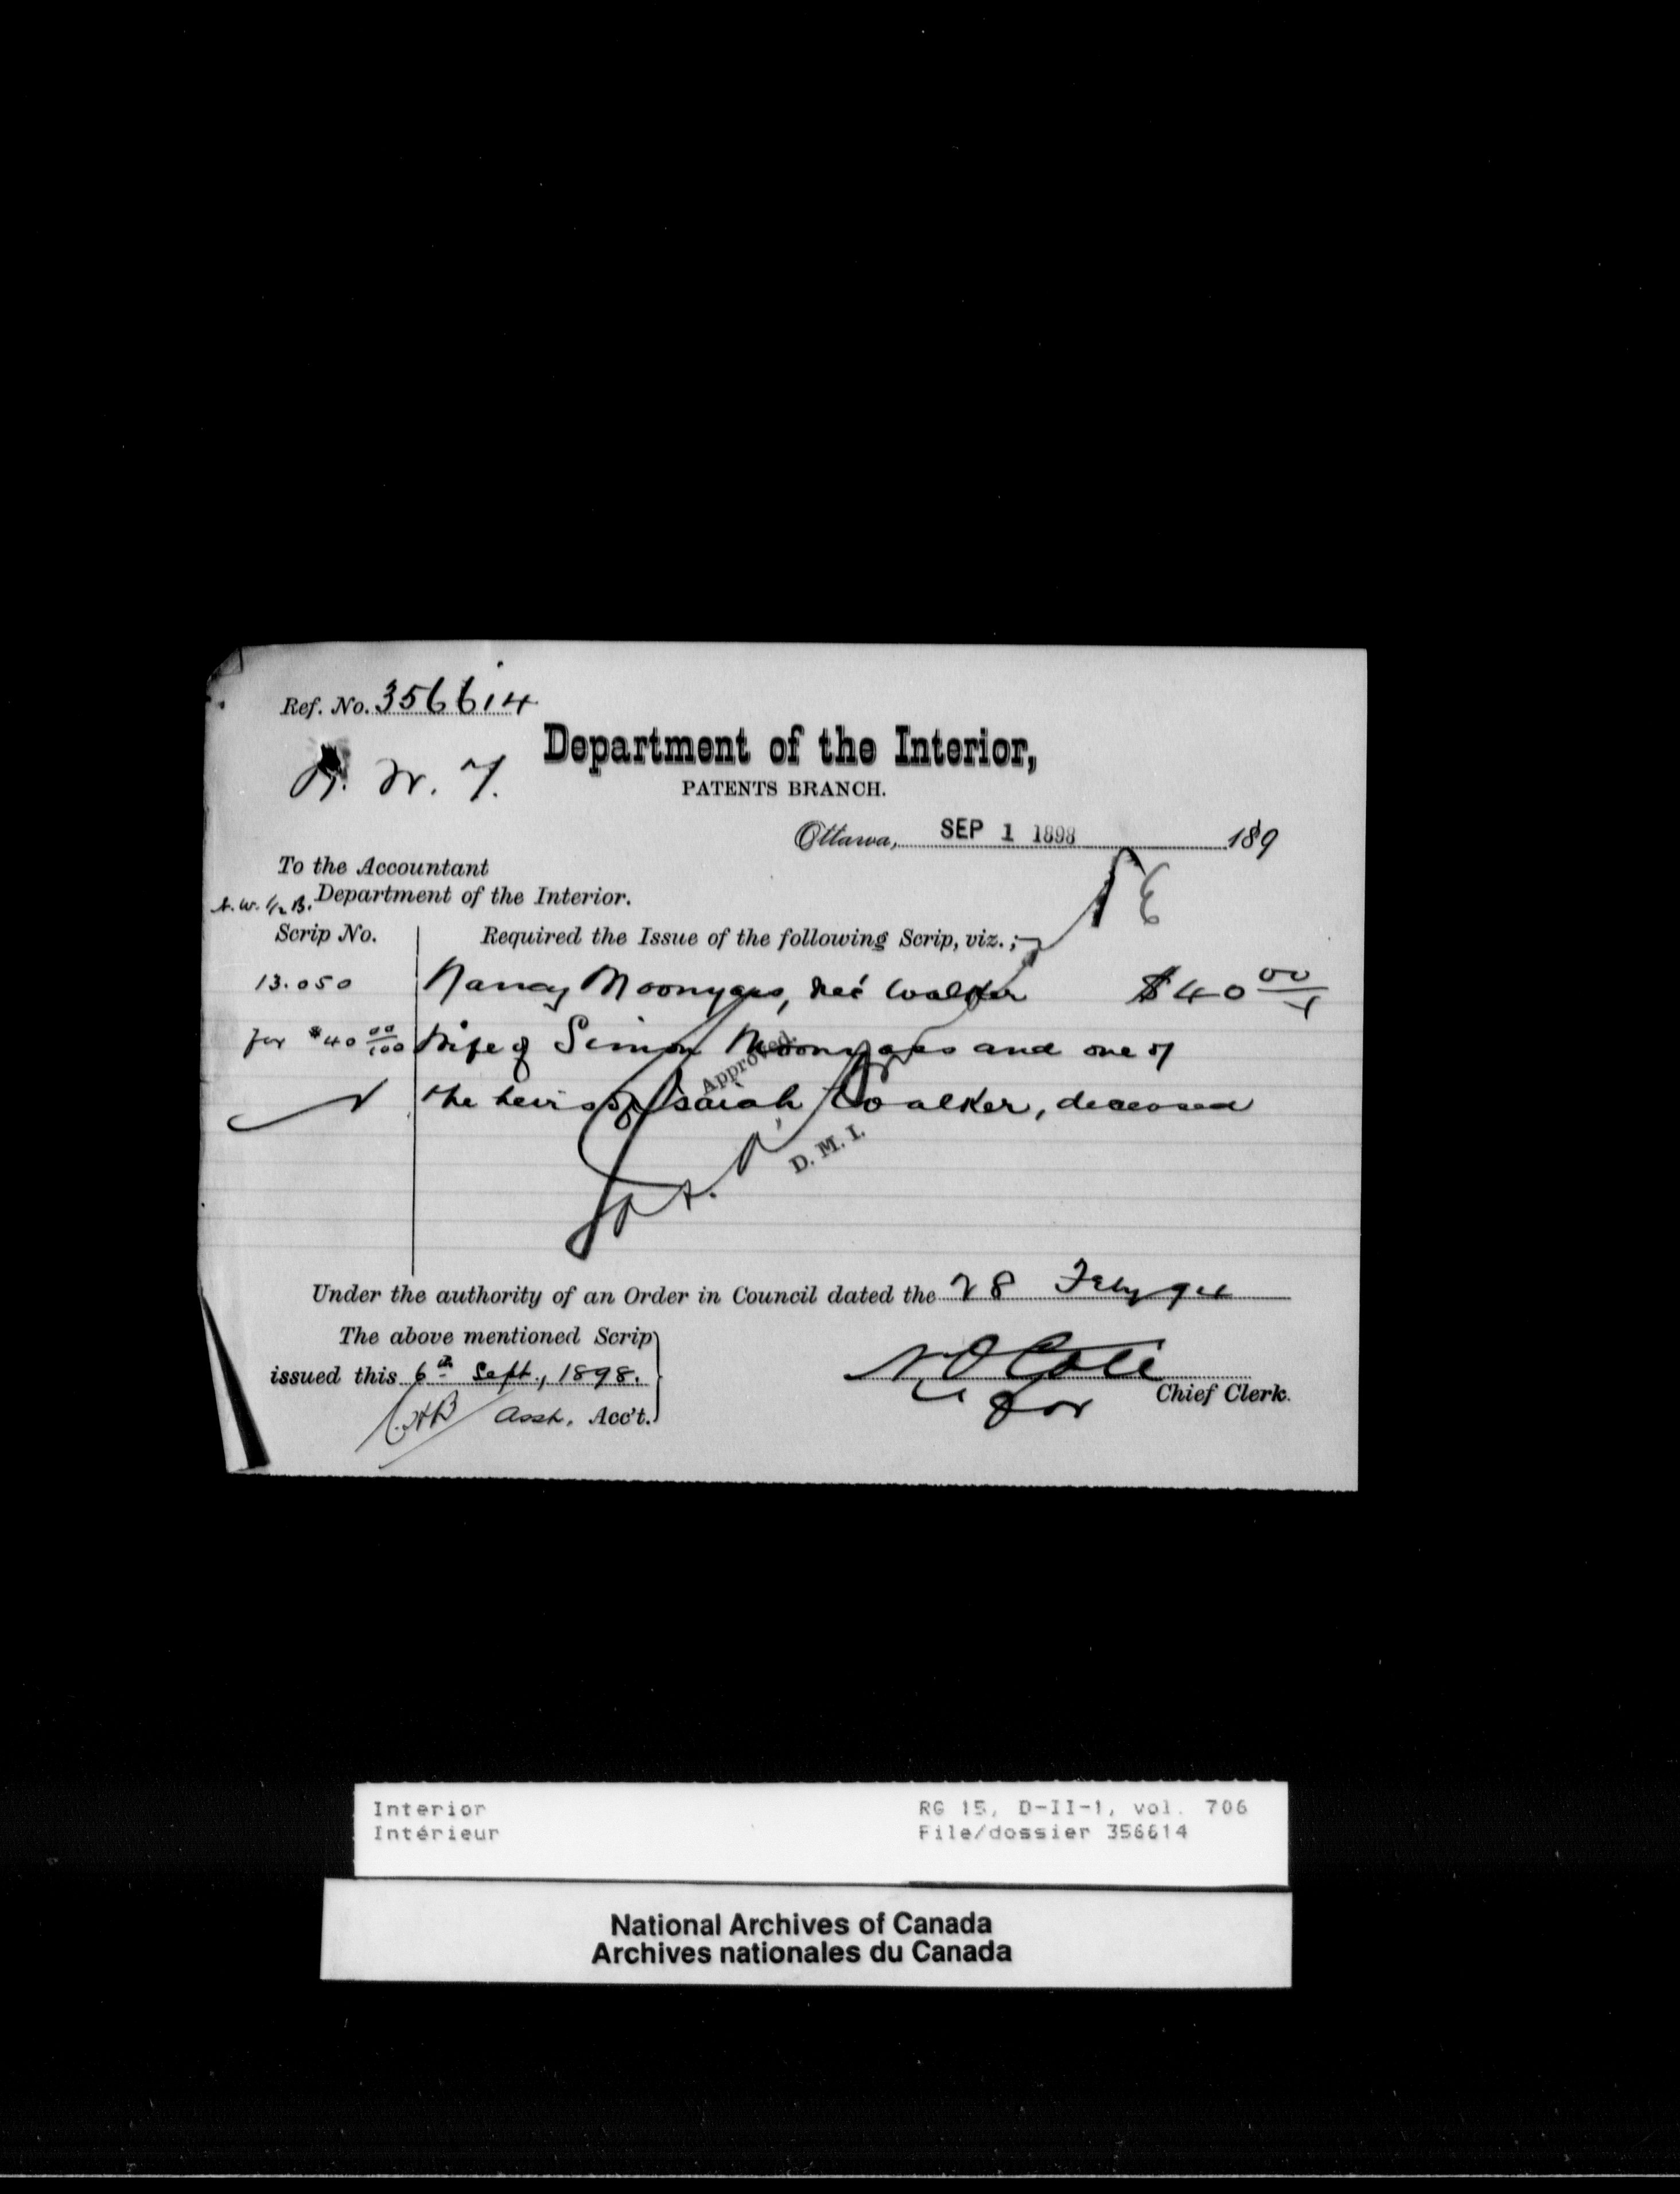 Ref. No. 356614
N. W. T.
Department of the Interior,
PATENTS BRANCH.
Ottawa, SEP 1 1898 189
To the Accountant
Department of the Interior.
N. W. ½ B.
Scrip No.
Required the Issue of the following Scrip, viz.;
13.050 Nancy Moonyass, neé Walker $40 00
for $40 00/100 Wife of Simon Moonyass and one of
the heirs of Isaiah Walker, deceased
Approved.
D. M. I.
Under the authority of an Order in Council dated the 28 Feby 94
The above mentioned Scrip
issued this 6th Sept., 1898.
Asst. Acc't.
N O Coté
for Chief Clerk.
Interior RG 15, D-II-1, vol. 706
Intérieur File/dossier 356614
National Archives of Canada
Archives nationales du Canada